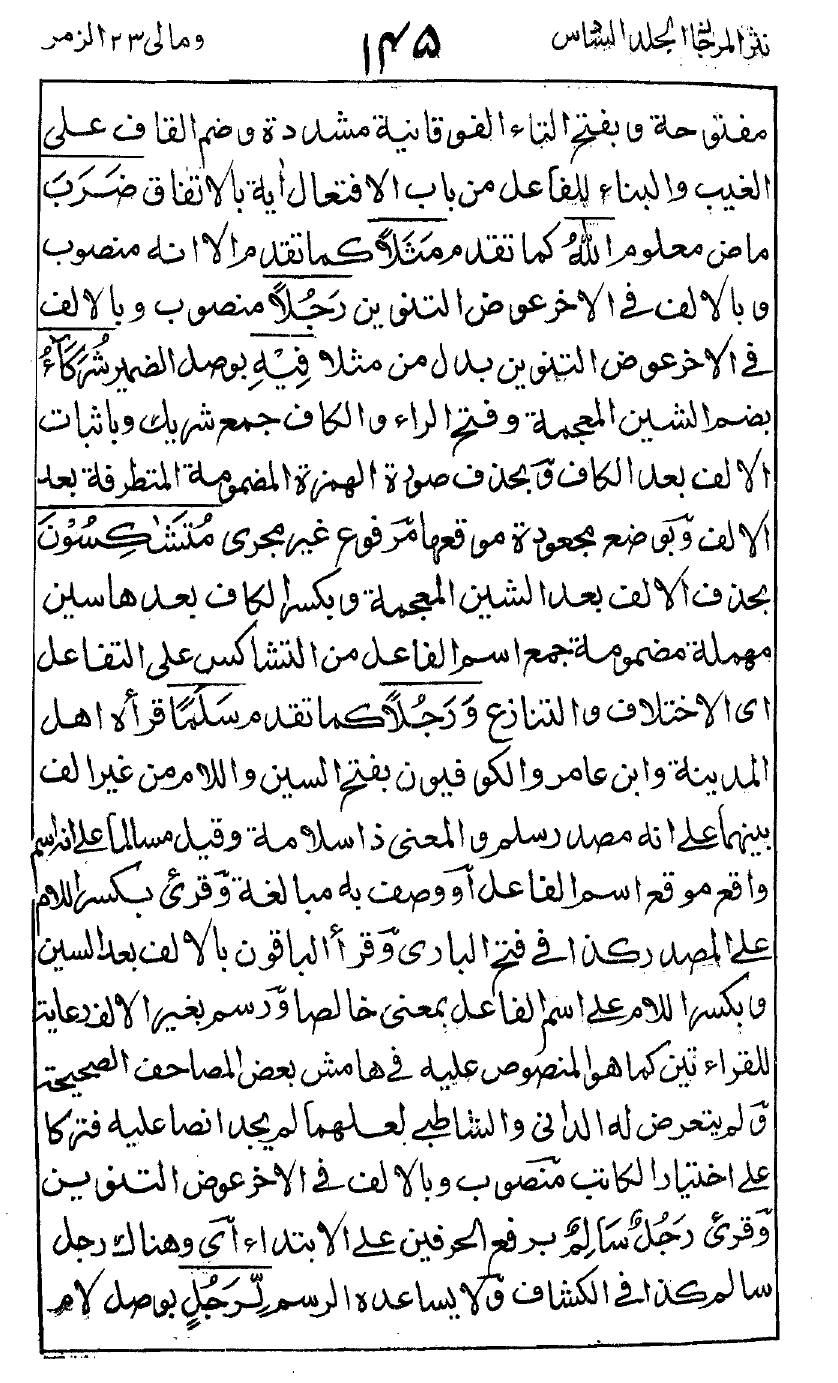 نثر المرجان الجلد السادس ١٤٥ ومالى ٢٣ الزمر
مفتوحة وبفتح التاء الفوقانية مشددة وضم القاف على
الغيب والبناء للفاعل من باب الافتعال اية بالاتفاق ضَرَبَ
ماض معلوم اللهُ كما تقدم مَثَلًا كما تقدم الا انه منصوب
وبالالف فى الاخر عوض التنوين رَجُلًا منصوب وبالالف
فى الاخر عوض التنوين بدل من مثلا فِيْهِ بوصل الضمير شُرَكَآءُ
بضم الشين المعجمة وفتح الراء والكاف جمع شريك وباثبات
الالف بعد الكاف وبحذف صورة الهمزة المضمومة المتطرفة بعد
الالف وبوضع مجعودة موقعها مرفوع غير مجرى مُتَشٰكِسُوْنَ
بحذف الالف بعد الشين المعجمة وبكسر الكاف بعدها سين
مهملة مضمومة جمع اسم الفاعل من التشاكس على التفاعل
اى الاختلاف والتنازع وَرَجُلًا كما تقدم سَلَمًا قرأه اهل
المدينة وابن عامر والكوفيون بفتح السين واللام من غير الف
بينهما على انه مصدر سلم والمعنى ذا سلامة وقيل مسالما على انه اسم
واقع موقع اسم الفاعل أو وصف به مبالغة وقرئ بكسر اللام
على المصدر كذا فى فتح البارى وقرأ الباقون بالالف بعد السين
وبكسر اللام على اسم الفاعل بمعنى خالصا ورسم بغير الالف رعاية
للقراءتين كما هو المنصوص عليه فى هامش بعض المصاحف الصحيحة
ولم يتعرض له الدانى والشاطبى لعلهما لم يجدا نصا عليه فتركا
على اختيار الكاتب منصوب وبالالف فى الاخر عوض التنوين
وقرئ رَجُلٌ سَالِمٌ برفع الحرفين على الابتداء اى وهناك رجل
سالم كذا فى الكشاف ولا يساعده الرسم لِّرَجُلٍ بوصل لام